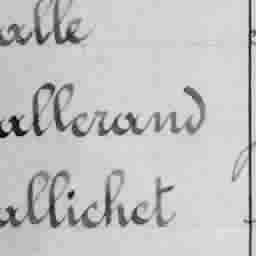 alle
allerand
allichet